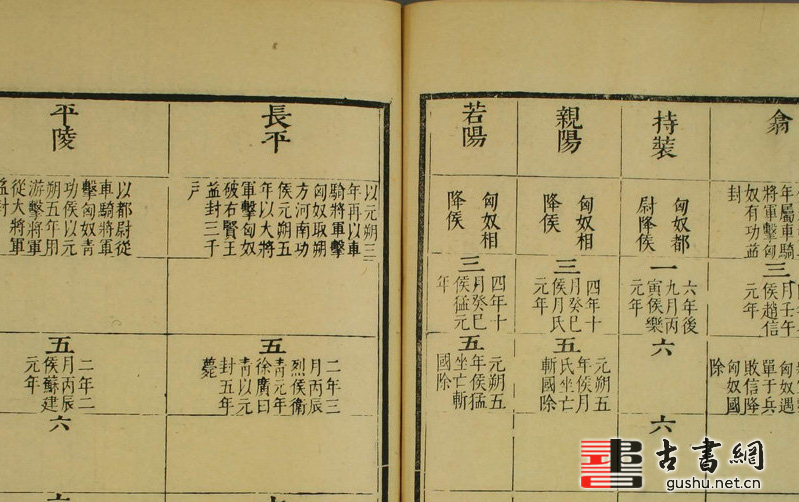 翕
年屬車騎
將軍擊匈
奴有功益
封
三
月壬午
侯趙信
元年
匈奴遇
單于兵
敗信降
匈奴國
除
持裝
匈奴都
尉降侯
一
六年後
九月丙
寅侯樂
元年
六
六
親陽
匈奴相
降侯
三
四年十
月癸巳
侯月氏
元年
元朔五
年侯月
氏坐亡
斬國除
若陽
匈奴相
降侯
三
四年十
月癸巳
侯猛元
年
元朔五
年侯猛
坐亡斬
國除
長平
以元朔二
年再以車
騎將軍擊
匈奴取朔
方河南功
侯元朔五
年以大將
軍擊匈奴
破右賢王
益封三千
戶
五
二年三
月丙辰
烈侯衛
青元年
徐廣曰
青以元
封五年
薨
平陵
以都尉從
車騎將軍
擊匈奴青
功侯以元
朔五年用
游擊將軍
從大將軍
益封
五
二年二
月丙辰
侯蘇建
元年
六
古書網
gushu.net.cn